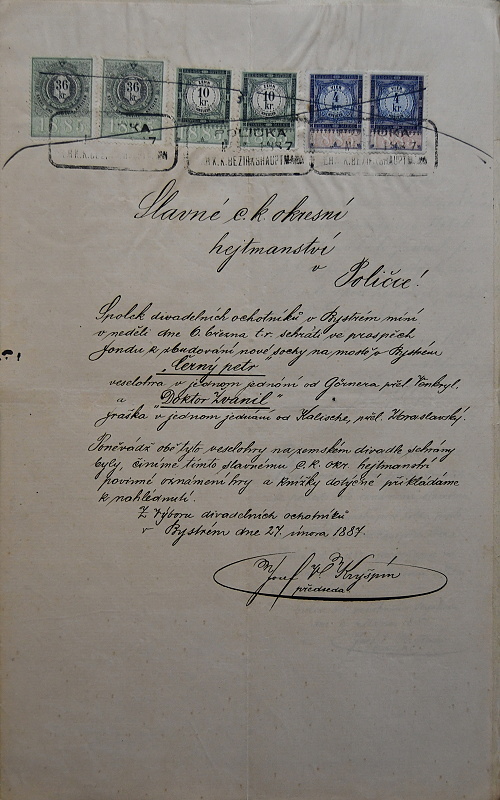 36 kr. 36 kr. 10 kr. 10 kr. 4 kr. 4 kr.
POLIČKA
K.K. BEZIRKSHAUPTMANN
Slavné c. k okresní
hejtmanství
v Poličce!
Spolek divadelních ochotníků v Bystrém míní
v neděli dne 6. března t.r. sehráti ve prospěch
fondu k zbudování nové sochy na mostě v Bystrém
„Černý petr"
veselohra v jednom jednání od Görnera přel. Vonbryl.
a „Doktor Zvanil"
fraška v jednom jednání od Kalische, přel. Horaslavský.
Poněvádž obě tyto veselohry na zemském divadle schrány
byly, činíme tímto slavnému c. k. okr. hejtmanství
povinné oznámení hry a knížky dotyčné přikládáme
k nahlednutí.
Z výboru divadelních ochotníků
v Bystrém dne 27. února 1887.
Josef Kryšpín
předseda